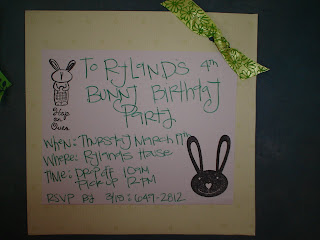 To Rylands 4th
Bunny Birthday
Party
Hop
on
Over
When: Thursday March 19th
Where: Rylands House
Time: Drop off 10am
Pick up 12pm
RSVP by 3/13: 649-2812